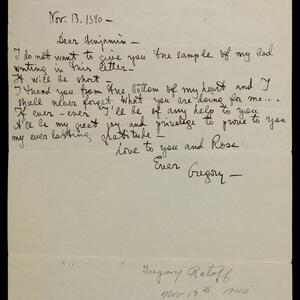 Nov. 13, 1940 –
Dear Benjamin –
I do not want to give you the sample of my bad
writing in this letter –
It will be short –
I thank you from the bottom of my heart and I
shall never forget what you are doing for me...
If ever – ever I'll be of any help to you
it'll be my great joy and privilege to prove to you
my ever lasting gratitude –
Love to you and Rose
Ever
Gregory –
Gregory Ratoff
Nov 13th 1940